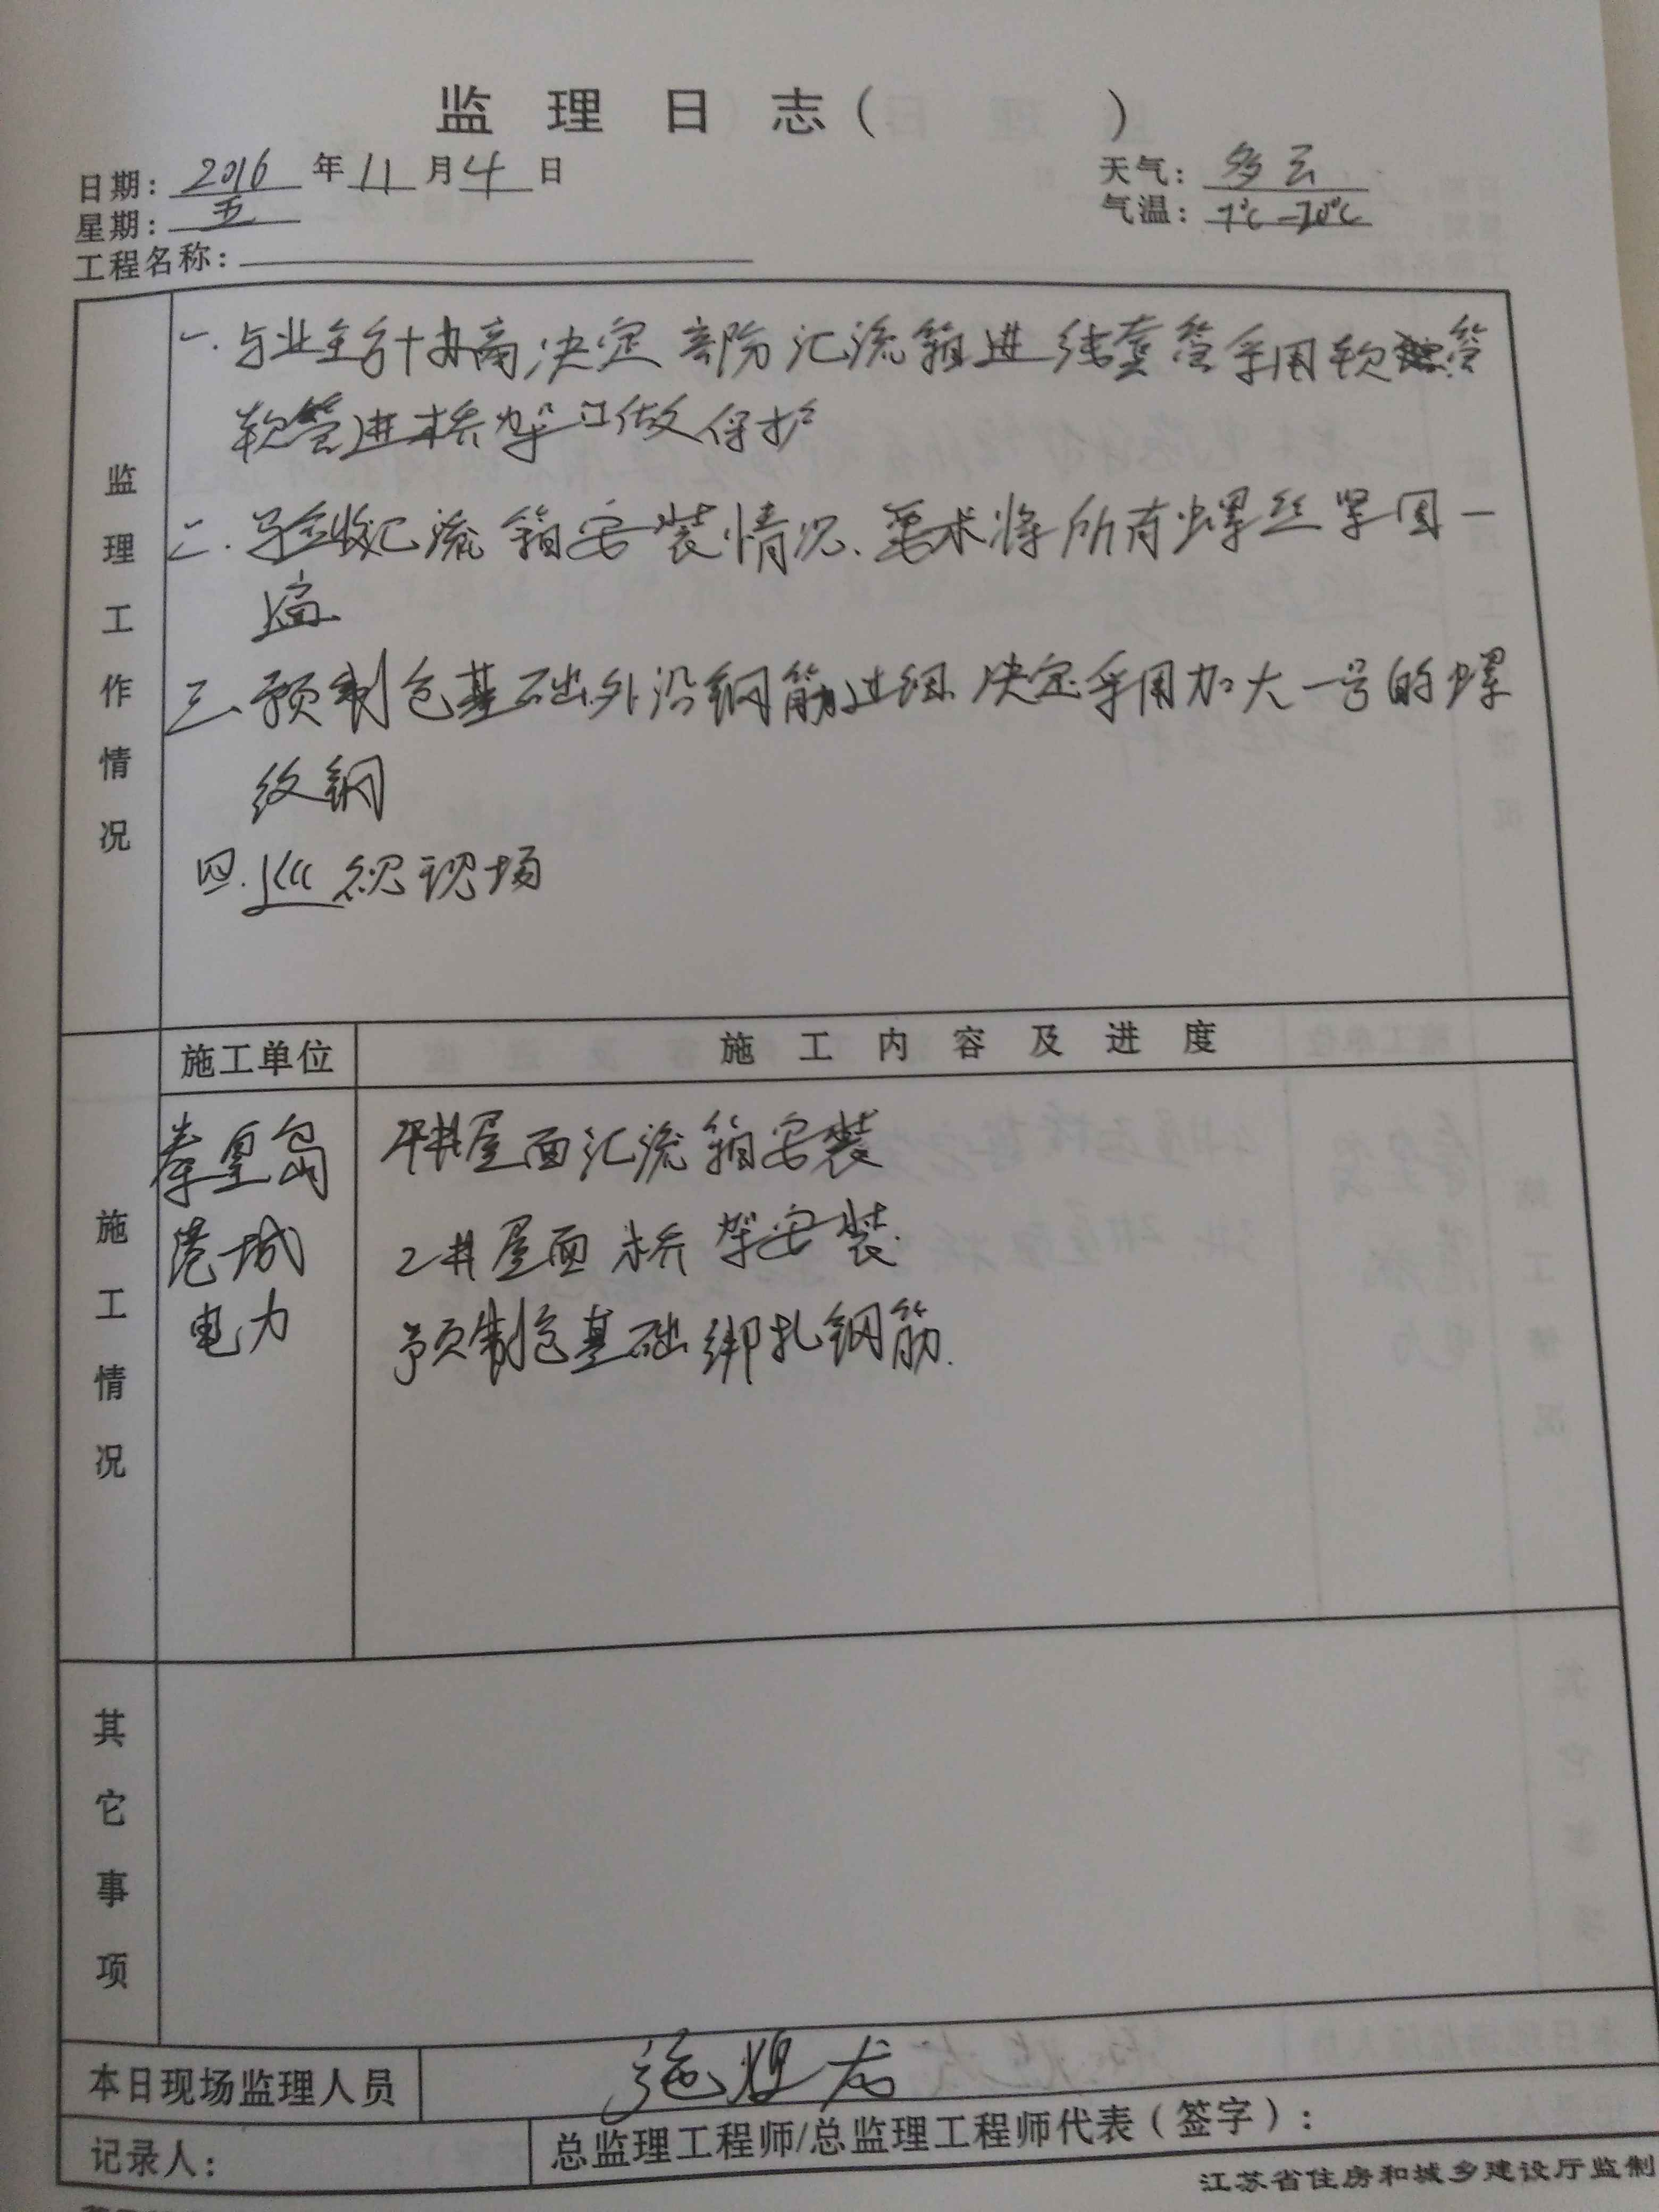 监理日志( )
日期: 2016 年 11 月 4 日
天气: 多云
星期: 五
气温: 7℃-20℃
工程名称:
监理工作情况
一. 与业主 商决定 汇流箱进线套管采用软 管
软管进桥架口做保护
二. 验收汇流箱安装情况、要求将所有螺丝紧固一
遍
三、预制仓基础外沿钢筋过细 决定采用加大一号的螺
纹钢
四. 巡视现场
施工情况
施工单位
施工内容及进度
秦皇岛
港城
电力
屋面汇流箱安装
2#屋面桥架安装.
预制仓基础绑扎钢筋.
其它事项
本日现场监理人员
施煜龙
记录人:
总监理工程师/总监理工程师代表(签字):
江苏省住房和城乡建设厅监制